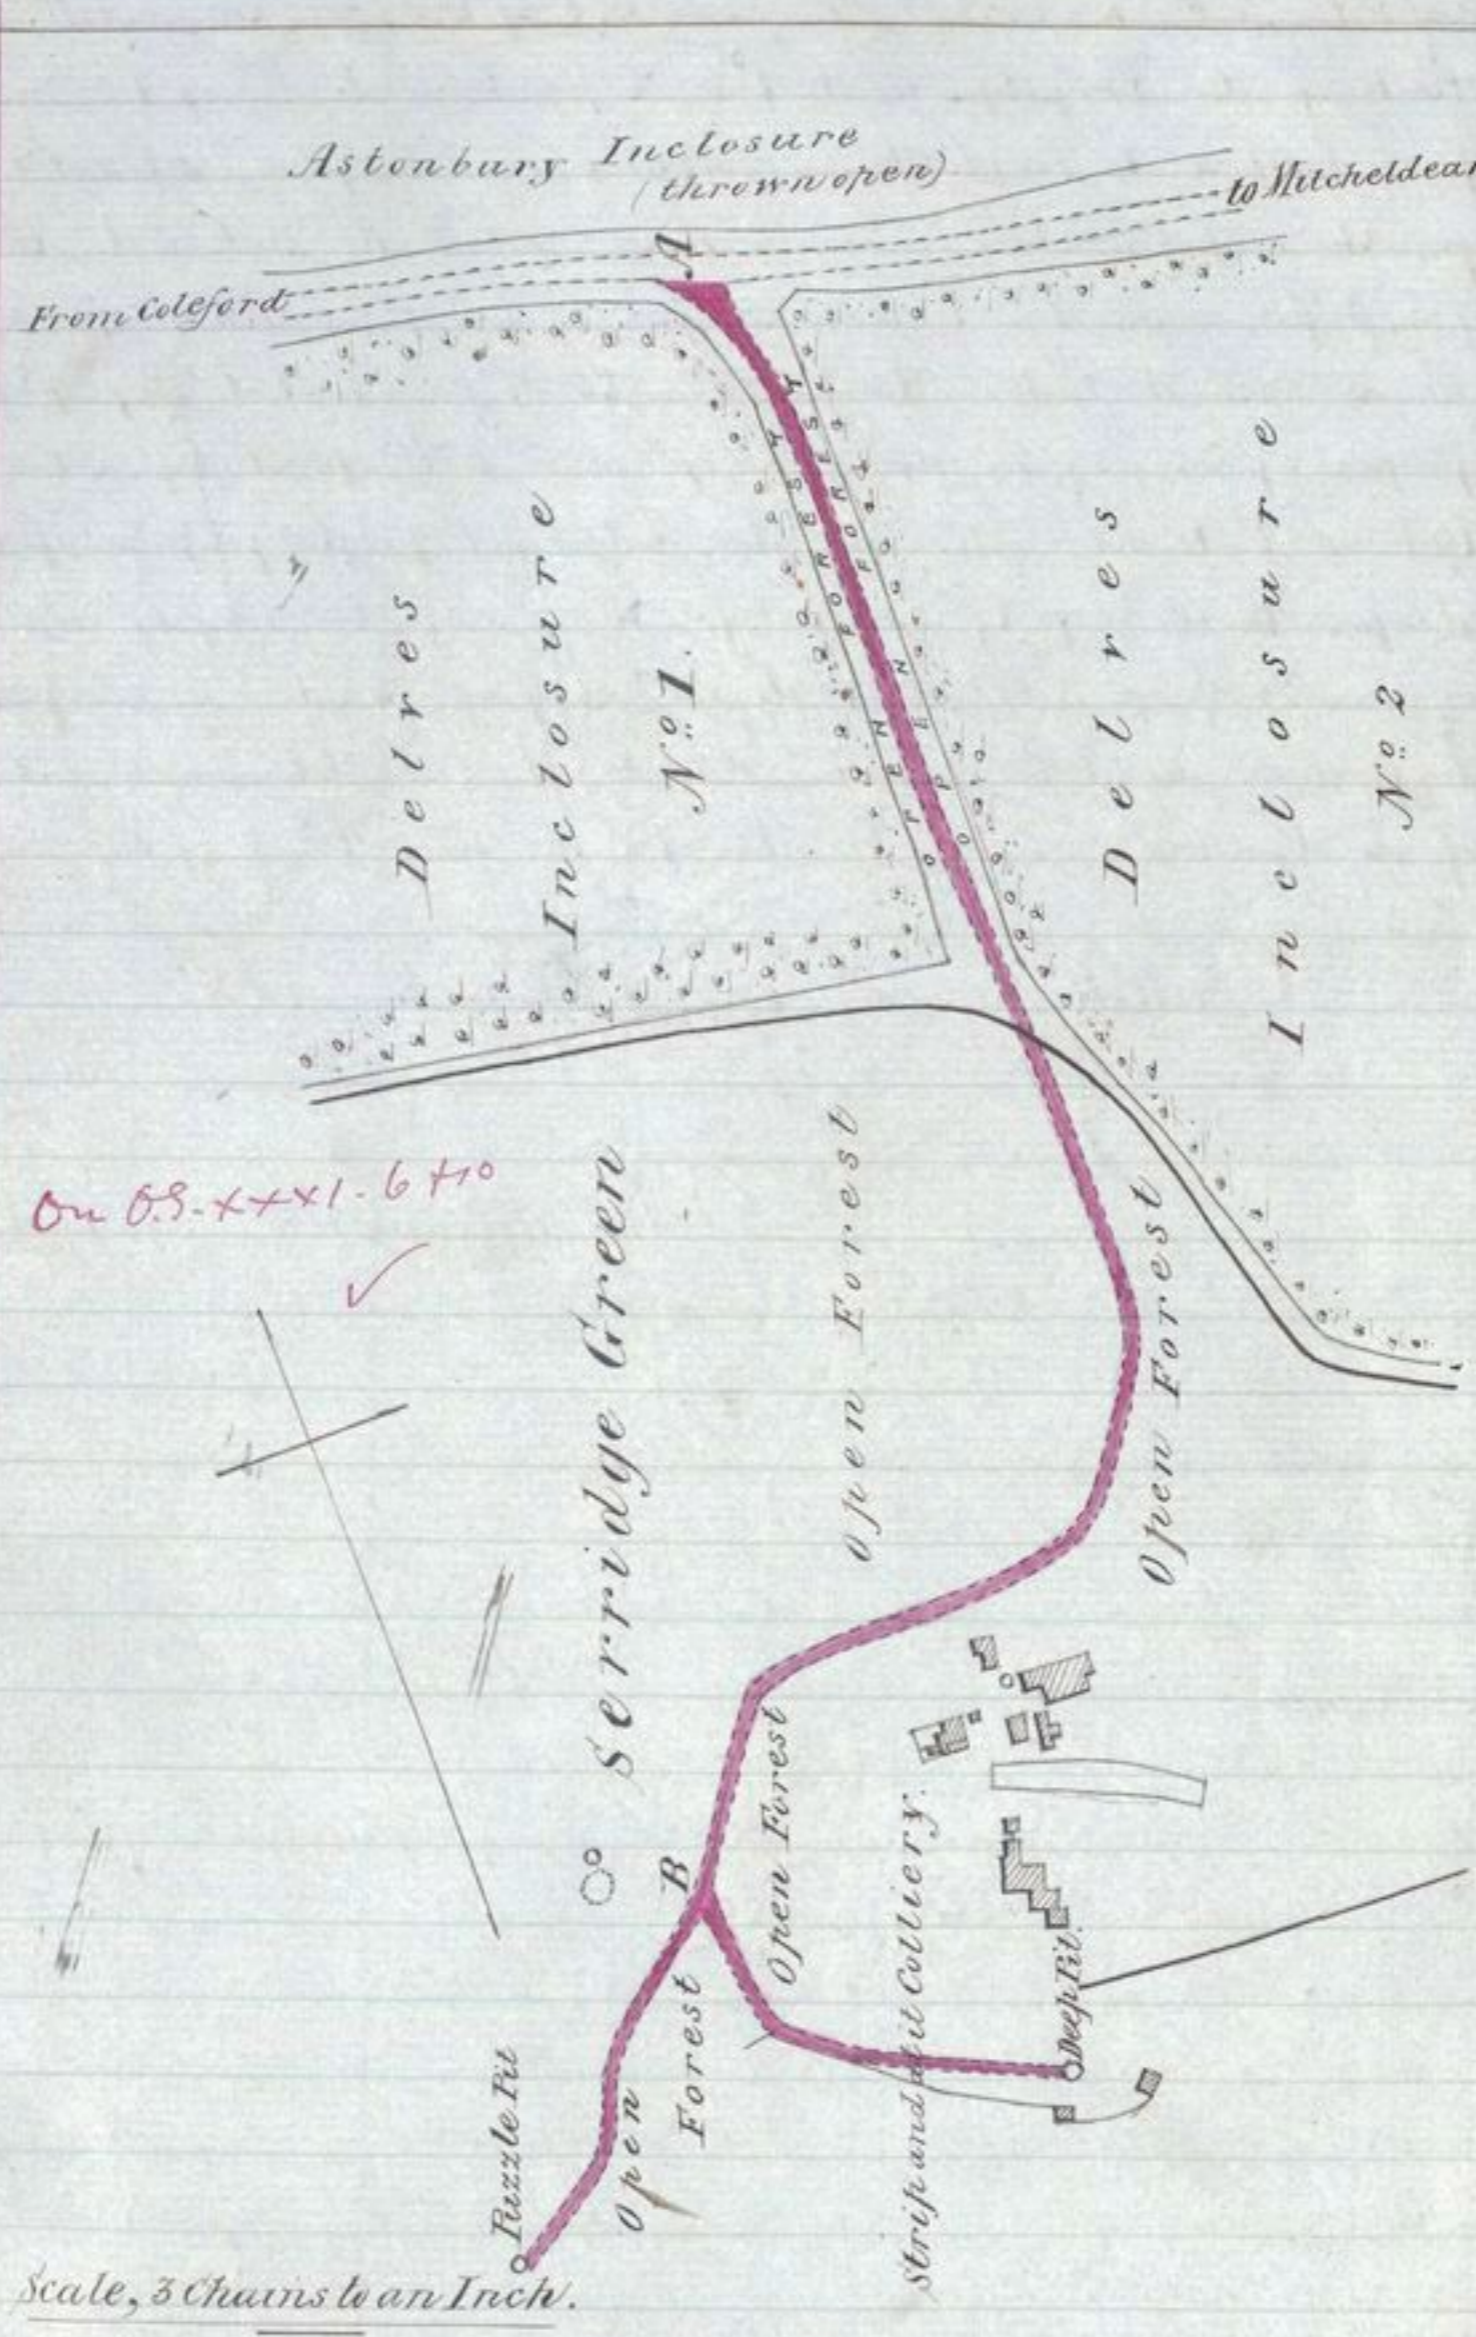 Astonbury Inclosure
(thrown open)
to Mitcheldean
From Coleford
A
OPEN FOREST
OPEN FOREST
Delves
Inclosure
Nº 1.
Delves
Inclosure
Nº 2
On O.S. XXXI. 6 + 10
Serridge Green
Open Forest
Open Forest
Open Forest
B
Open
Forest
Strip and at it Colliery.
Deep Pit.
Puzzle Pit
Scale, 3 Chains to an Inch.